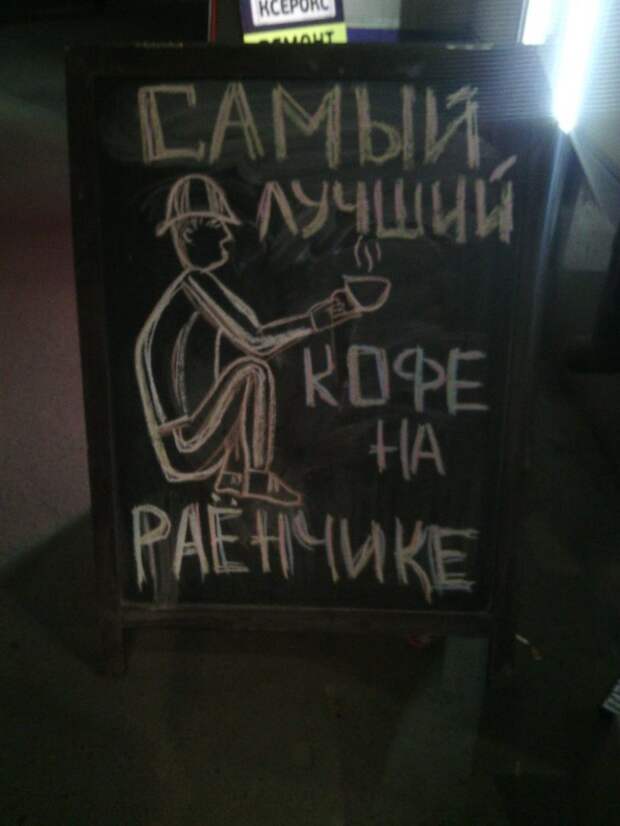 КСЕРОКС
РЕМОНТ
САМЫЙ
ЛУЧШИЙ
КОФЕ
НА
РАЁНЧИКЕ